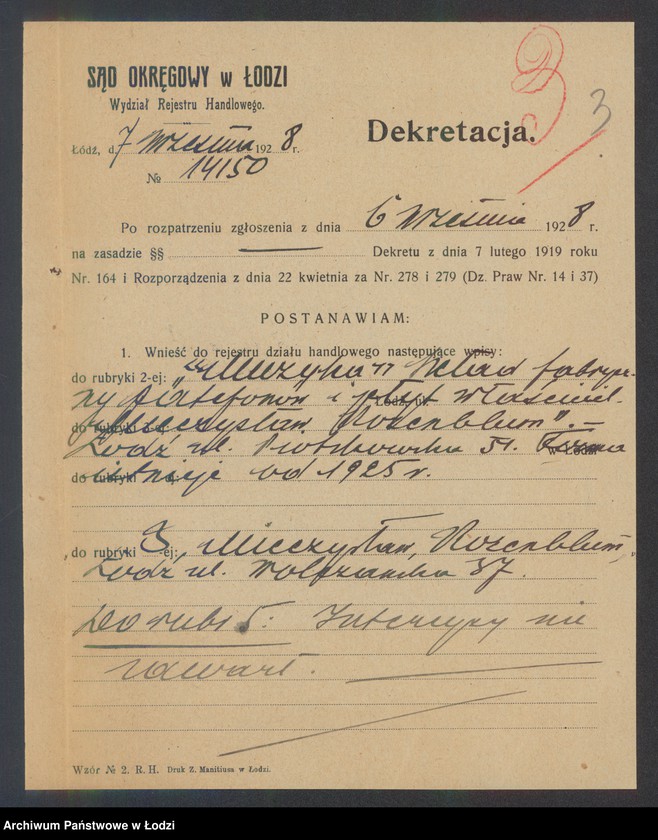 SĄD OKRĘGOWY w ŁODZI
Wydział Rejestru Handlowego.
Łódź, d. 7 września 1928 r.
№ 14150
3
Dekretacja.
Po rozpatrzeniu zgłoszenia z dnia 6 września 1928 r.
na zasadzie §§ Dekretu z dnia 7 lutego 1919 roku
Nr. 164 i Rozporządzenia z dnia 22 kwietnia za Nr. 278 i 279 (Dz. Praw Nr. 14 i 37)
POSTANAWIAM:
1. Wnieść do rejestru działu handlowego następujące wpisy:
do rubryki 2-ej: „Muzyka" Skład fabrycz-
ny patefonów i płyt właściciel
Mieczysław Rozenblum".
Łódź ul. Piotrkowska 51. Firma
istnieje od 1925 r.
do rubryki 3-ej: „Mieczysław Rozenblum,
Łódź ul. Wólczańska 37.
Do rubr 5: Intercyzy nie
zawarł.
Wzór № 2. R. H. Druk Z. Manitiusa w Łodzi.
Archiwum Państwowe w Łodzi